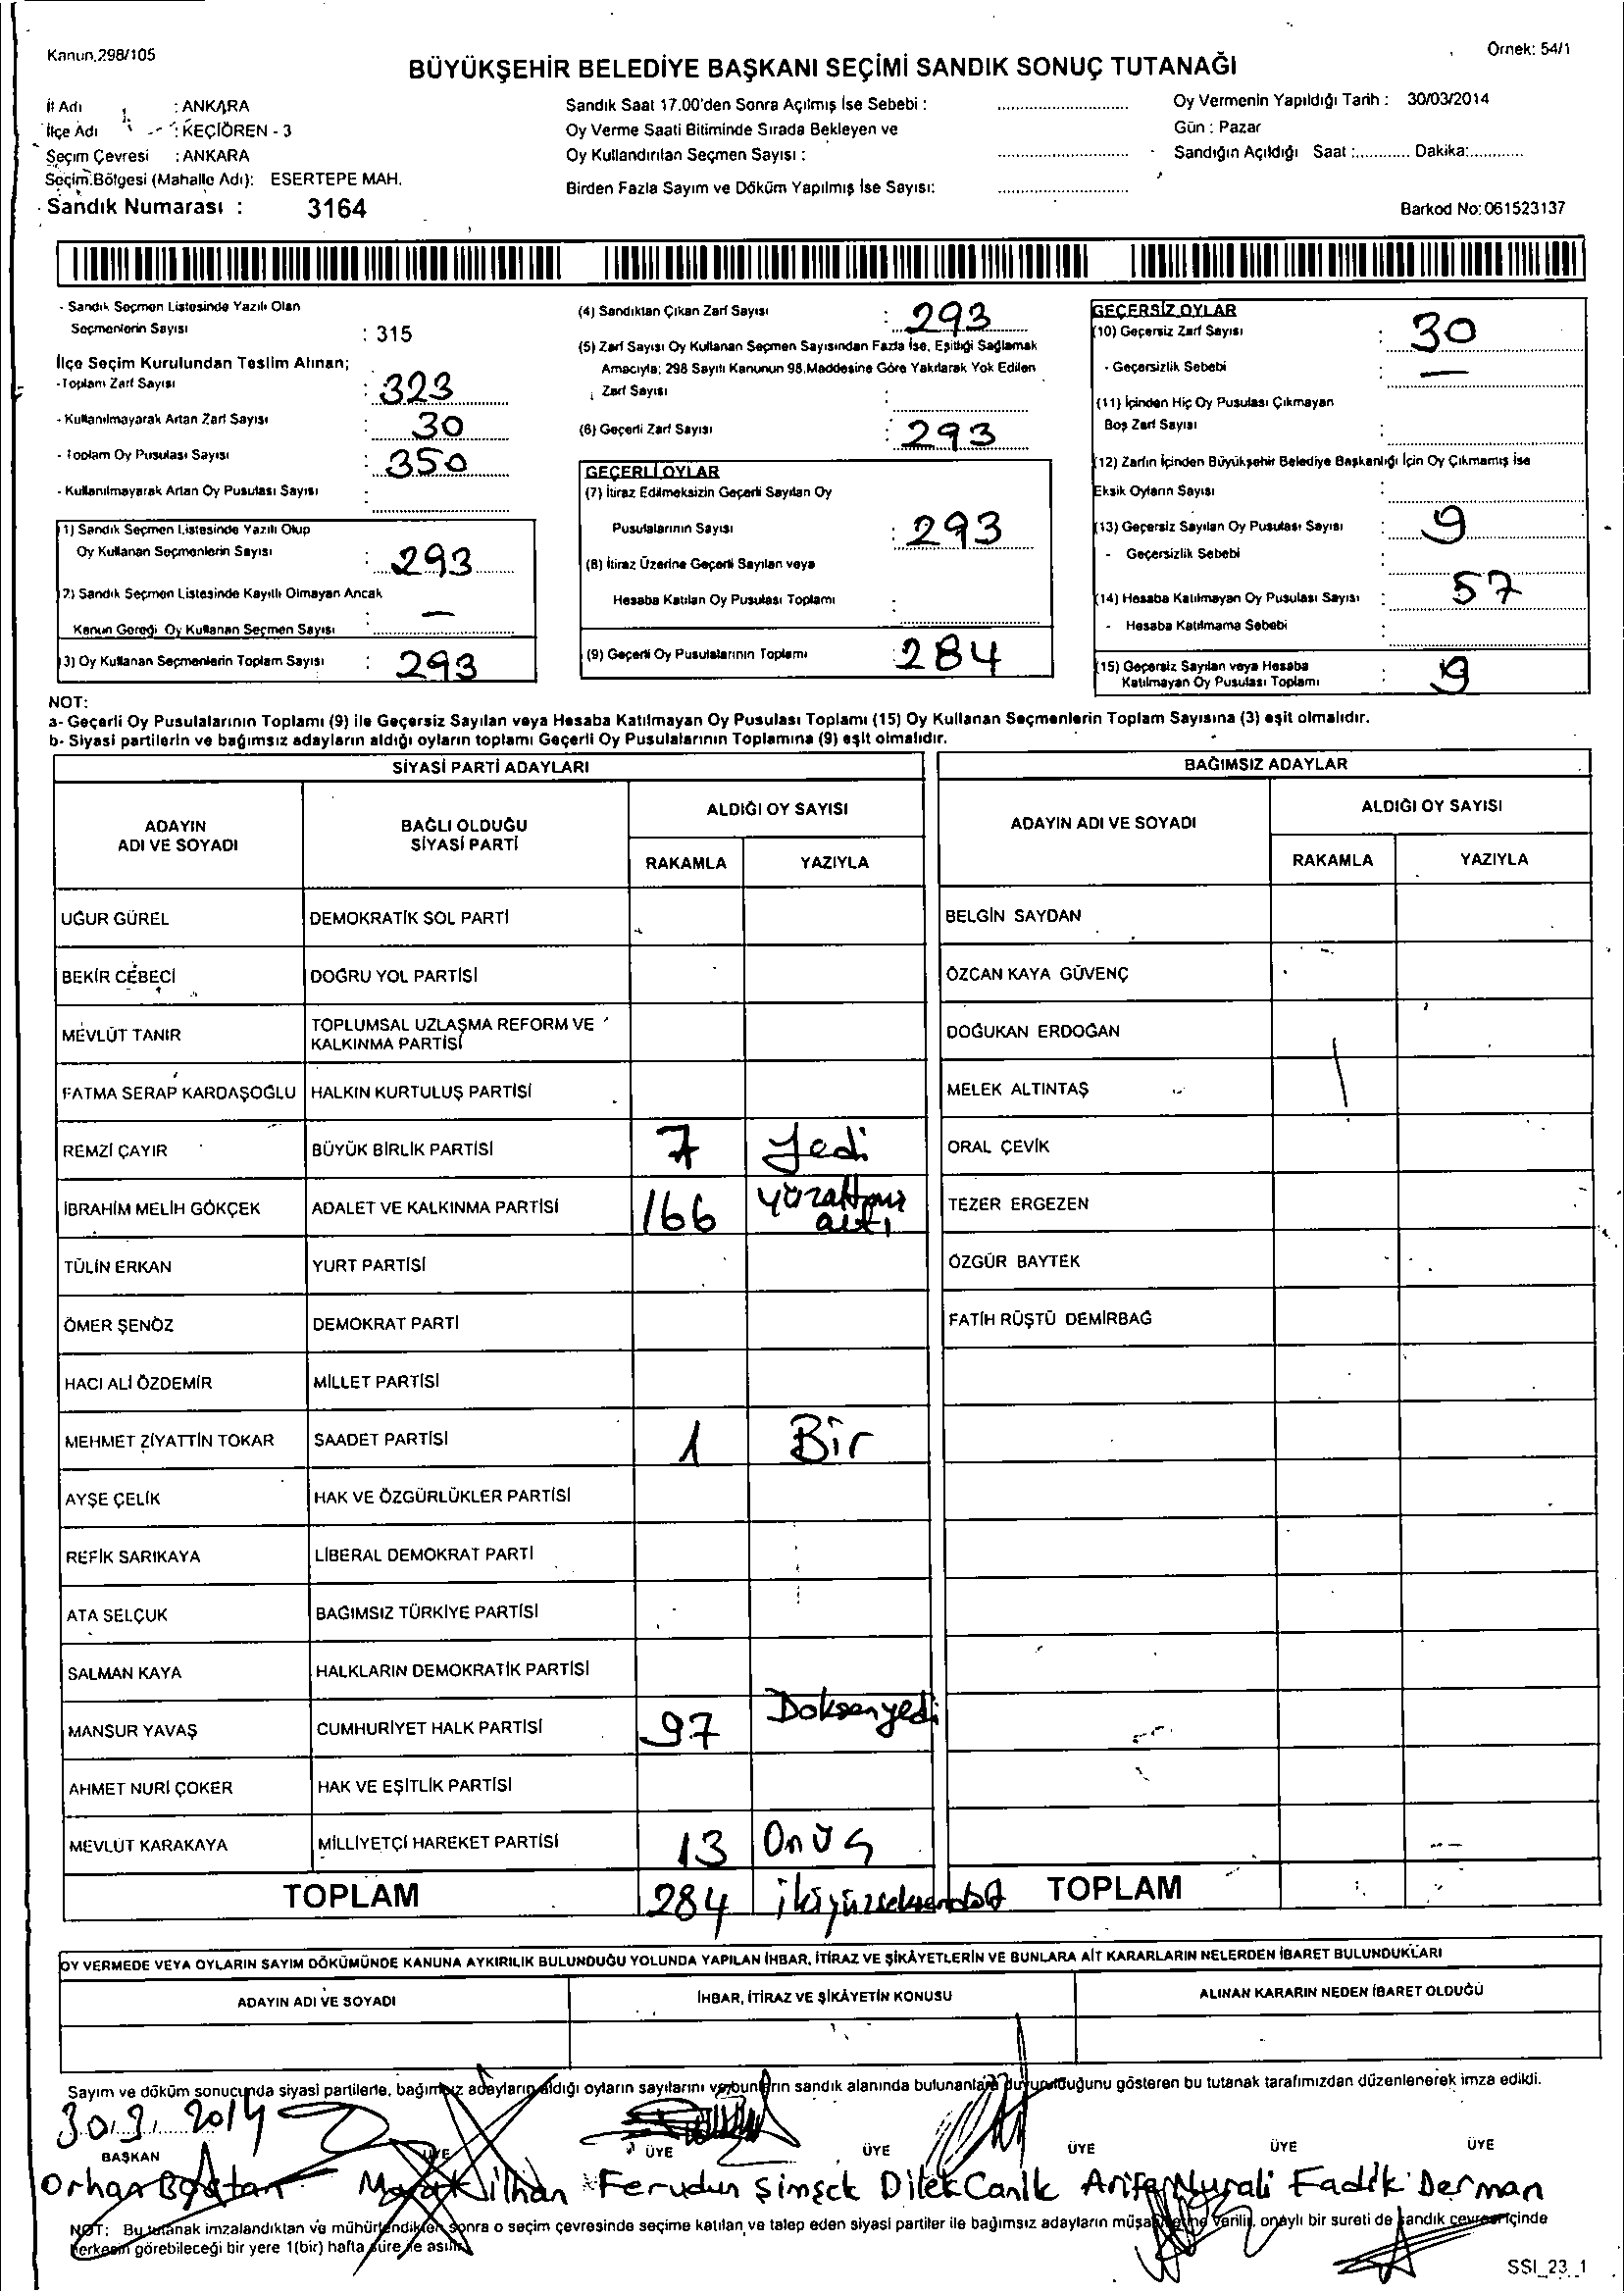 Kanun.298/105
Örnek: 54/1
BÜYÜKŞEHİR BELEDİYE BAŞKANI SEÇİMİ SANDIK SONUÇ TUTANAĞI
İl Adı : ANKARA
İlçe Adı : KEÇİÖREN - 3
Seçim Çevresi : ANKARA
Seçim Bölgesi (Mahalle Adı): ESERTEPE MAH.
Sandık Numarası : 3164
Sandık Saat 17.00'den Sonra Açılmış İse Sebebi :
Oy Verme Saati Bitiminde Sırada Bekleyen ve
Oy Kullandırılan Seçmen Sayısı :
Birden Fazla Sayım ve Döküm Yapılmış İse Sayısı:
Oy Vermenin Yapıldığı Tarih : 30/03/2014
Gün : Pazar
Sandığın Açıldığı Saat :............ Dakika:............
Barkod No:061523137
- Sandık Seçmen Listesinde Yazılı Olan
Seçmenlerin Sayısı : 315
İlçe Seçim Kurulundan Teslim Alınan;
-Toplam Zarf Sayısı : 323
- Kullanılmayarak Artan Zarf Sayısı : 30
- Toplam Oy Pusulası Sayısı : 350
- Kullanılmayarak Artan Oy Pusulası Sayısı :
1) Sandık Seçmen Listesinde Yazılı Olup
Oy Kullanan Seçmenlerin Sayısı : 293
2) Sandık Seçmen Listesinde Kayıtlı Olmayan Ancak
Kanun Gereği Oy Kullanan Seçmen Sayısı : —
3) Oy Kullanan Seçmenlerin Toplam Sayısı : 293
(4) Sandıktan Çıkan Zarf Sayısı : 293
(5) Zarf Sayısı Oy Kullanan Seçmen Sayısından Fazla İse, Eşitliği Sağlamak
Amacıyla; 298 Sayılı Kanunun 98.Maddesine Göre Yakılarak Yok Edilen
Zarf Sayısı :
(6) Geçerli Zarf Sayısı : 293
GEÇERLİ OYLAR
(7) İtiraz Edilmeksizin Geçerli Sayılan Oy
Pusulalarının Sayısı : 293
(8) İtiraz Üzerine Geçerli Sayılan veya
Hesaba Katılan Oy Pusulası Toplamı :
(9) Geçerli Oy Pusulalarının Toplamı : 284
GEÇERSİZ OYLAR
(10) Geçersiz Zarf Sayısı : 30
- Geçersizlik Sebebi : —
(11) İçinden Hiç Oy Pusulası Çıkmayan
Boş Zarf Sayısı :
(12) Zarfın İçinden Büyükşehir Belediye Başkanlığı İçin Oy Çıkmamış İse
Eksik Oyların Sayısı :
(13) Geçersiz Sayılan Oy Pusulası Sayısı : 9
- Geçersizlik Sebebi :
(14) Hesaba Katılmayan Oy Pusulası Sayısı : 57
- Hesaba Katılmama Sebebi :
(15) Geçersiz Sayılan veya Hesaba
Katılmayan Oy Pusulası Toplamı : 9
NOT:
a- Geçerli Oy Pusulalarının Toplamı (9) ile Geçersiz Sayılan veya Hesaba Katılmayan Oy Pusulası Toplamı (15) Oy Kullanan Seçmenlerin Toplam Sayısına (3) eşit olmalıdır.
b- Siyasi partilerin ve bağımsız adayların aldığı oyların toplamı Geçerli Oy Pusulalarının Toplamına (9) eşit olmalıdır.
SİYASİ PARTİ ADAYLARI
ADAYIN ADI VE SOYADI
BAĞLI OLDUĞU SİYASİ PARTİ
ALDIĞI OY SAYISI
RAKAMLA YAZIYLA
UĞUR GÜREL DEMOKRATİK SOL PARTİ
BEKİR CEBECİ DOĞRU YOL PARTİSİ
MEVLÜT TANIR TOPLUMSAL UZLAŞMA REFORM VE KALKINMA PARTİSİ
FATMA SERAP KARDAŞOĞLU HALKIN KURTULUŞ PARTİSİ
REMZİ ÇAYIR BÜYÜK BİRLİK PARTİSİ 7 Yedi
İBRAHİM MELİH GÖKÇEK ADALET VE KALKINMA PARTİSİ 166 yüzaltmış altı
TÜLİN ERKAN YURT PARTİSİ
ÖMER ŞENÖZ DEMOKRAT PARTİ
HACI ALİ ÖZDEMİR MİLLET PARTİSİ
MEHMET ZİYATTİN TOKAR SAADET PARTİSİ 1 Bir
AYŞE ÇELİK HAK VE ÖZGÜRLÜKLER PARTİSİ
REFİK SARIKAYA LİBERAL DEMOKRAT PARTİ
ATA SELÇUK BAĞIMSIZ TÜRKİYE PARTİSİ
SALMAN KAYA HALKLARIN DEMOKRATİK PARTİSİ
MANSUR YAVAŞ CUMHURİYET HALK PARTİSİ 97 Doksanyedi
AHMET NURİ ÇOKER HAK VE EŞİTLİK PARTİSİ
MEVLÜT KARAKAYA MİLLİYETÇİ HAREKET PARTİSİ 13 Onüç
TOPLAM 284 ikiyüzseksendört
BAĞIMSIZ ADAYLAR
ADAYIN ADI VE SOYADI
ALDIĞI OY SAYISI
RAKAMLA YAZIYLA
BELGİN SAYDAN
ÖZCAN KAYA GÜVENÇ
DOĞUKAN ERDOĞAN
MELEK ALTINTAŞ
ORAL ÇEVİK
TEZER ERGEZEN
ÖZGÜR BAYTEK
FATİH RÜŞTÜ DEMİRBAĞ
TOPLAM
OY VERMEDE VEYA OYLARIN SAYIM DÖKÜMÜNDE KANUNA AYKIRILIK BULUNDUĞU YOLUNDA YAPILAN İHBAR, İTİRAZ VE ŞİKÂYETLERİN VE BUNLARA AİT KARARLARIN NELERDEN İBARET BULUNDUKLARI
ADAYIN ADI VE SOYADI İHBAR, İTİRAZ VE ŞİKÂYETİN KONUSU ALINAN KARARIN NEDEN İBARET OLDUĞU
Sayım ve döküm sonucunda siyasi partilerle, bağımsız adayların aldığı oyların sayılarını ve bunların sandık alanında bulunanlara duyurulduğunu gösteren bu tutanak tarafımızdan düzenlenerek imza edildi.
30.3.2014
BAŞKAN ÜYE ÜYE ÜYE ÜYE ÜYE ÜYE
Orhan İlhan Ferudun Şimşek Dilek Canik Arife Nurali Fadik Derman
NOT: Bu tutanak imzalandıktan ve mühürlendikten sonra o seçim çevresinde seçime katılan ve talep eden siyasi partiler ile bağımsız adayların müşahitlerine verilir, onaylı bir sureti de sandık çevresi içinde
herkesin görebileceği bir yere 1(bir) hafta süre ile asılır.
SSI_23_1